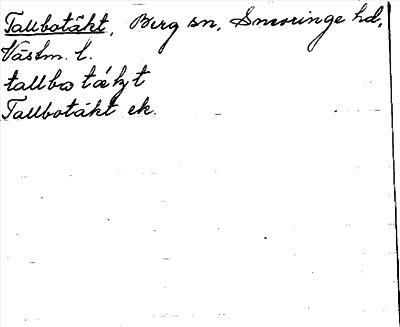 Tallbotäkt, Berg sn, Snevringe hd,
Västm. l.
tallbo täkt
Tallbotäkt ek.